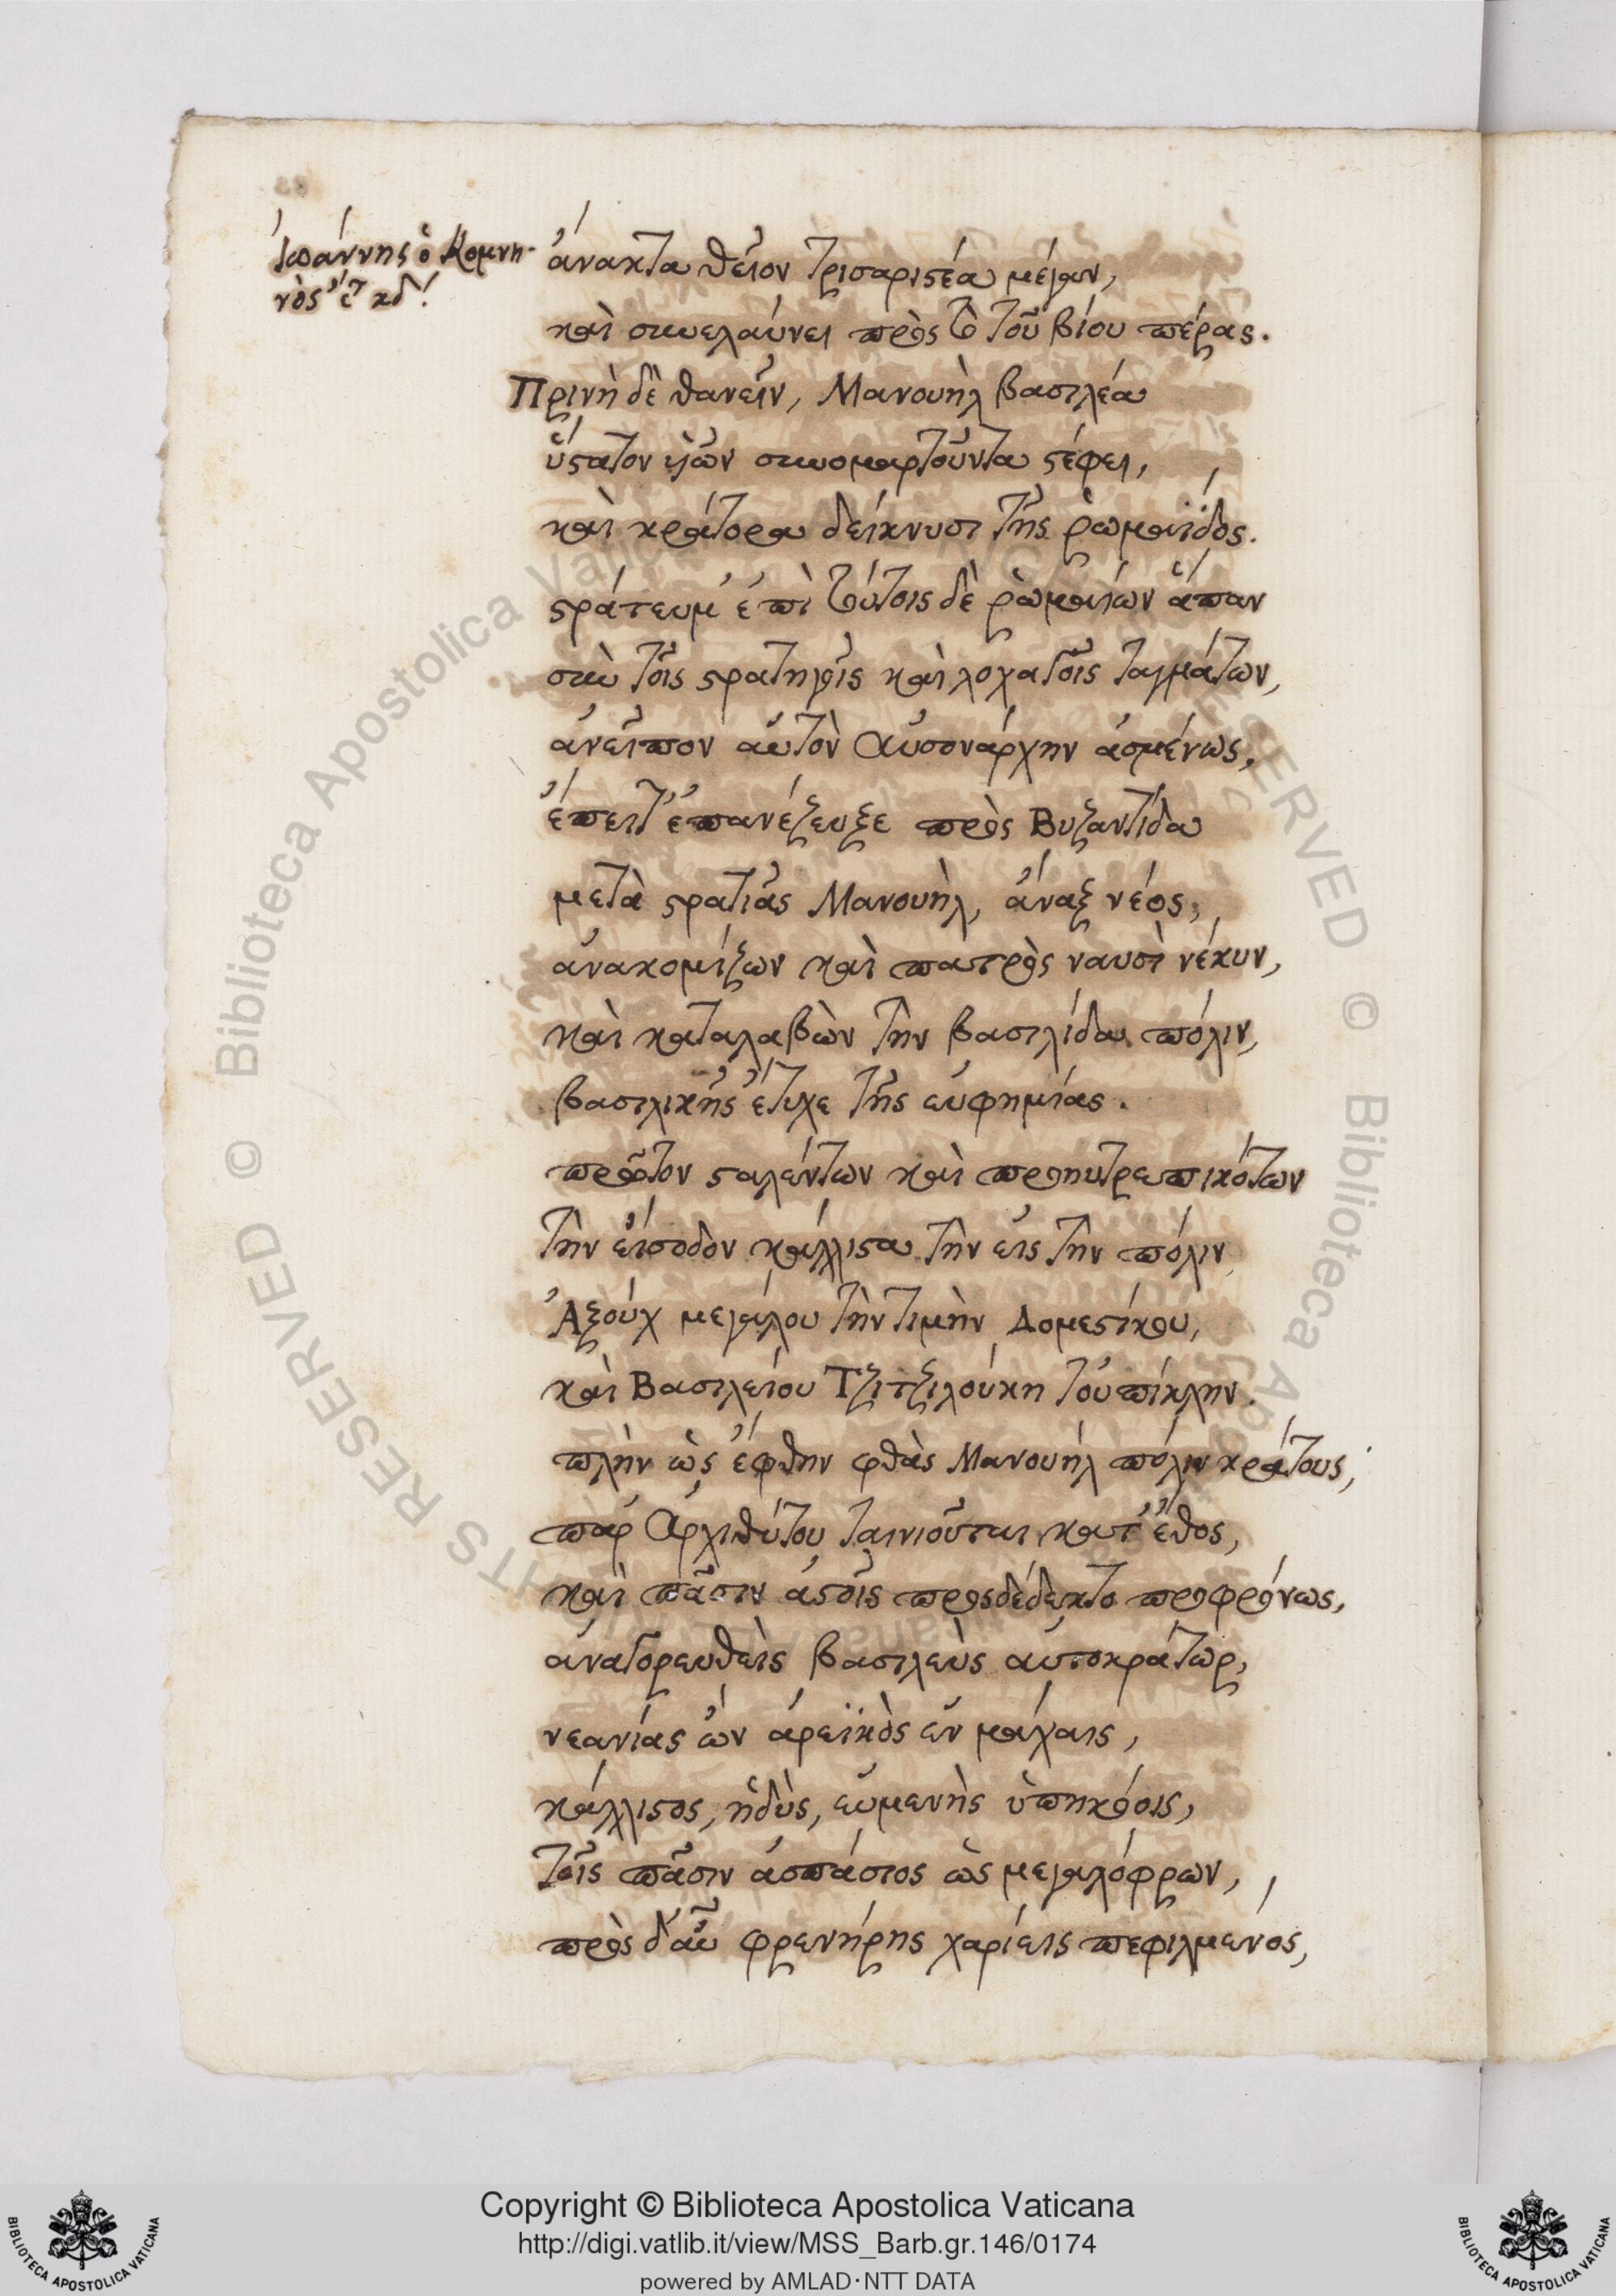 Ἰωάννης ὁ Κομνη-
νὸς ἔτ κδʹ.
ἄνακτα θεῖον τρισαριστέα μέγαν,
καὶ συνελαύνει πρὸς τὸ τοῦ βίου πέρας.
Πρινὴ δὲ θανεῖν, Μανουὴλ βασιλέα
ὕστατον υἱῶν συνομαρτοῦντα στέφει,
καὶ κράτορα δείκνυσι τῆς ῥωμαΐδος.
στράτευμ' ἐπὶ τούτοις δὲ ῥωμαίων ἅπαν
σὺν τοῖς στρατηγοῖς καὶ λοχαγοῖς ταγμάτων,
ἀνεῖπον αὐτὸν Αὐσονάρχην ἀσμένως,
ἔπειτ' ἐπανέζευξε πρὸς Βυζαντίδα
μετὰ στρατιᾶς Μανουὴλ, ἄναξ νέος,
ἀνακομίζων καὶ πατρὸς ναυσὶ νέκυν,
καὶ καταλαβὼν τὴν βασιλίδα πόλιν,
βασιλικῆς ἔτυχε τῆς εὐφημίας.
πρῶτον σταλέντων καὶ προηυτρεπικότων
τὴν εἴσοδον κάλλιστα τὴν εἰς τὴν πόλιν
Ἀξοὺχ μεγάλου τὴν τιμὴν Δομεστίκου,
καὶ Βασιλείου Τζιτζιλούκη τοὐπίκλην.
πλὴν ὡς ἔφθην φθὰς Μανουὴλ πόλιν κράτους,
παρ' Ἀρχιθύτου ταινιοῦται κατ' ἔθος,
καὶ πᾶσιν ἀστοῖς προσδέδεκτο προφρόνως,
ἀναγορευθεὶς βασιλεὺς αὐτοκράτωρ,
νεανίας ὢν ἀρεϊκὸς ἐν μάχαις,
κάλλιστος, ἡδὺς, εὐμενὴς ὑπηκόοις,
τοῖς πᾶσιν ἀσπάσιος ὡς μεγαλόφρων,
πρὸς δ' αὖ φρενήρης χαρίεις πεφιλμενός,
Copyright © Biblioteca Apostolica Vaticana
http://digi.vatlib.it/view/MSS_Barb.gr.146/0174
powered by AMLAD·NTT DATA
BIBLIOTECA APOSTOLICA VATICANA
BIBLIOTECA APOSTOLICA VATICANA